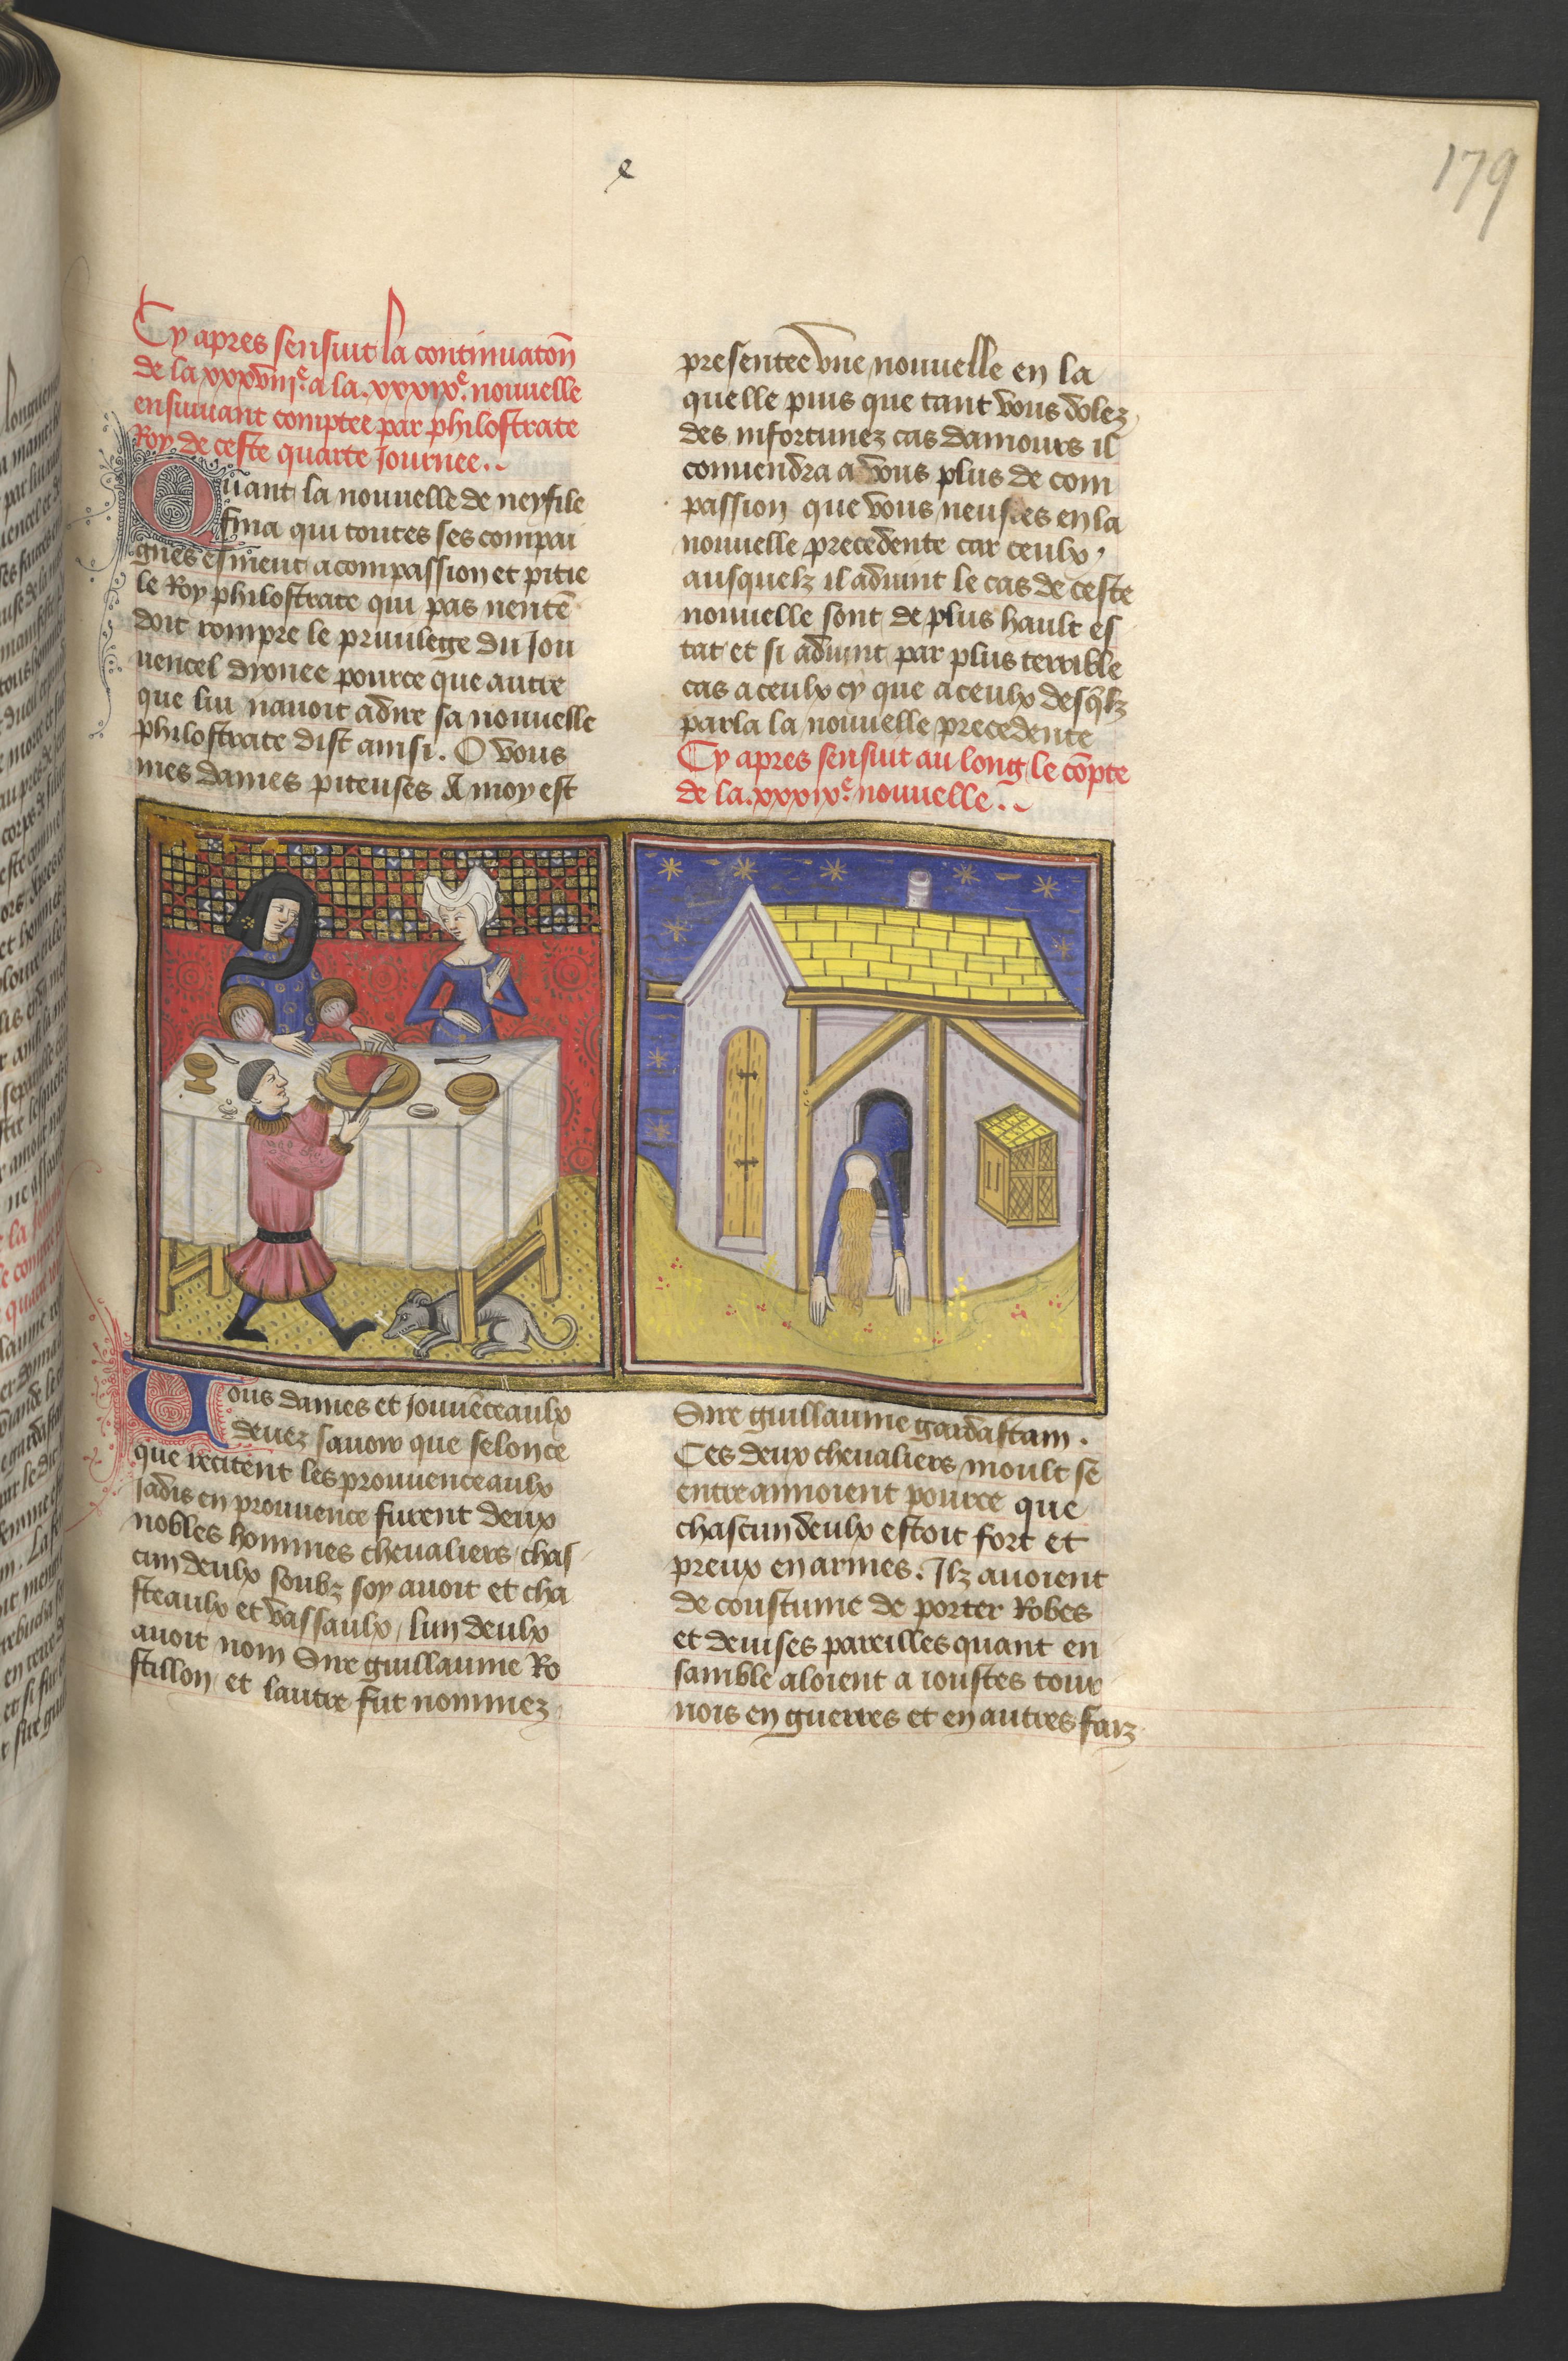 179
e
Cy apres sensuit la continuatoñ
de la xxxviijᵉ a la .xxxixᵉ. nouuelle
ensuiuant comptee par philostrate
Roy de ceste quarte journee.
Quant la nouuelle de neyfile
fina qui toutes ses compai
gnes esmeut a compassion et pitie
le Roy philostrate qui pas nentẽ
doit rompre le priuilege du Jou
uencel dyonee pource que autre
que lui nauoit adire sa nouuelle
philostrate dist ainsi. O vous
mes dames piteuses A moy est
presentee vne nouuelle en la
quelle puis que tant vous dolez
des infortunez cas damours il
conuendra a vous plus de com
passion que vous neustes en la
nouuelle precedente car ceulx
ausquelz il aduint le cas de ceste
nouuelle sont de plus hault es
tat et si aduint par plus terrible
cas a ceulx cy que a ceulx desq̃lz
parla la nouuelle precedente
Cy apres sensuit au long le cõpte
de la .xxxixᵉ. nouuelle.
Vous dames et jouuẽceaulx
deuez sauoir que selon ce
que recitent les prouuenceaulx
Jadis en prouuence furent deux
nobles hommes cheualiers chas
cun deulx soubz soy auoit et cha
steaulx et vassaulx, lun deulx
auoit nom Sire guillaume Ro
stillon, et lautre fut nommez
Sire guillaume gardastam.
Ces deux cheualiers moult se
entreamoient pource que
chascun deulx estoit fort et
preux en armes. Ilz auoient
de coustume de porter Robes
et deuises pareilles quant en
samble aloient a ioustes tour
nois en guerres et en autres faiz